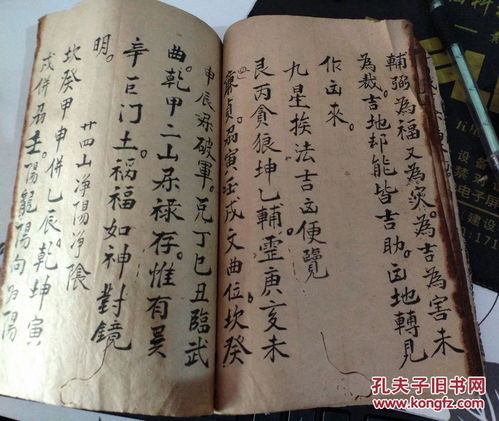 輔弼為福又為灾。為吉為害未
為裁。吉地却能皆吉助。凶地轉見
作凶來。
九星挨法吉凶便覽
艮丙貪狼坤乙輔。震庚亥未
廉貞。寅壬戌文曲位。坎癸
申辰破軍。兑丁巳丑臨武
曲。乾甲二山禄存。惟有巽
辛巨门土。祸福如神對鏡
明。
廿四山净陽净陰
坎癸甲申併乙辰。乾坤寅
戌併壬陽龍陽向為陽
设备
孔夫子旧书网
www.kongfz.com